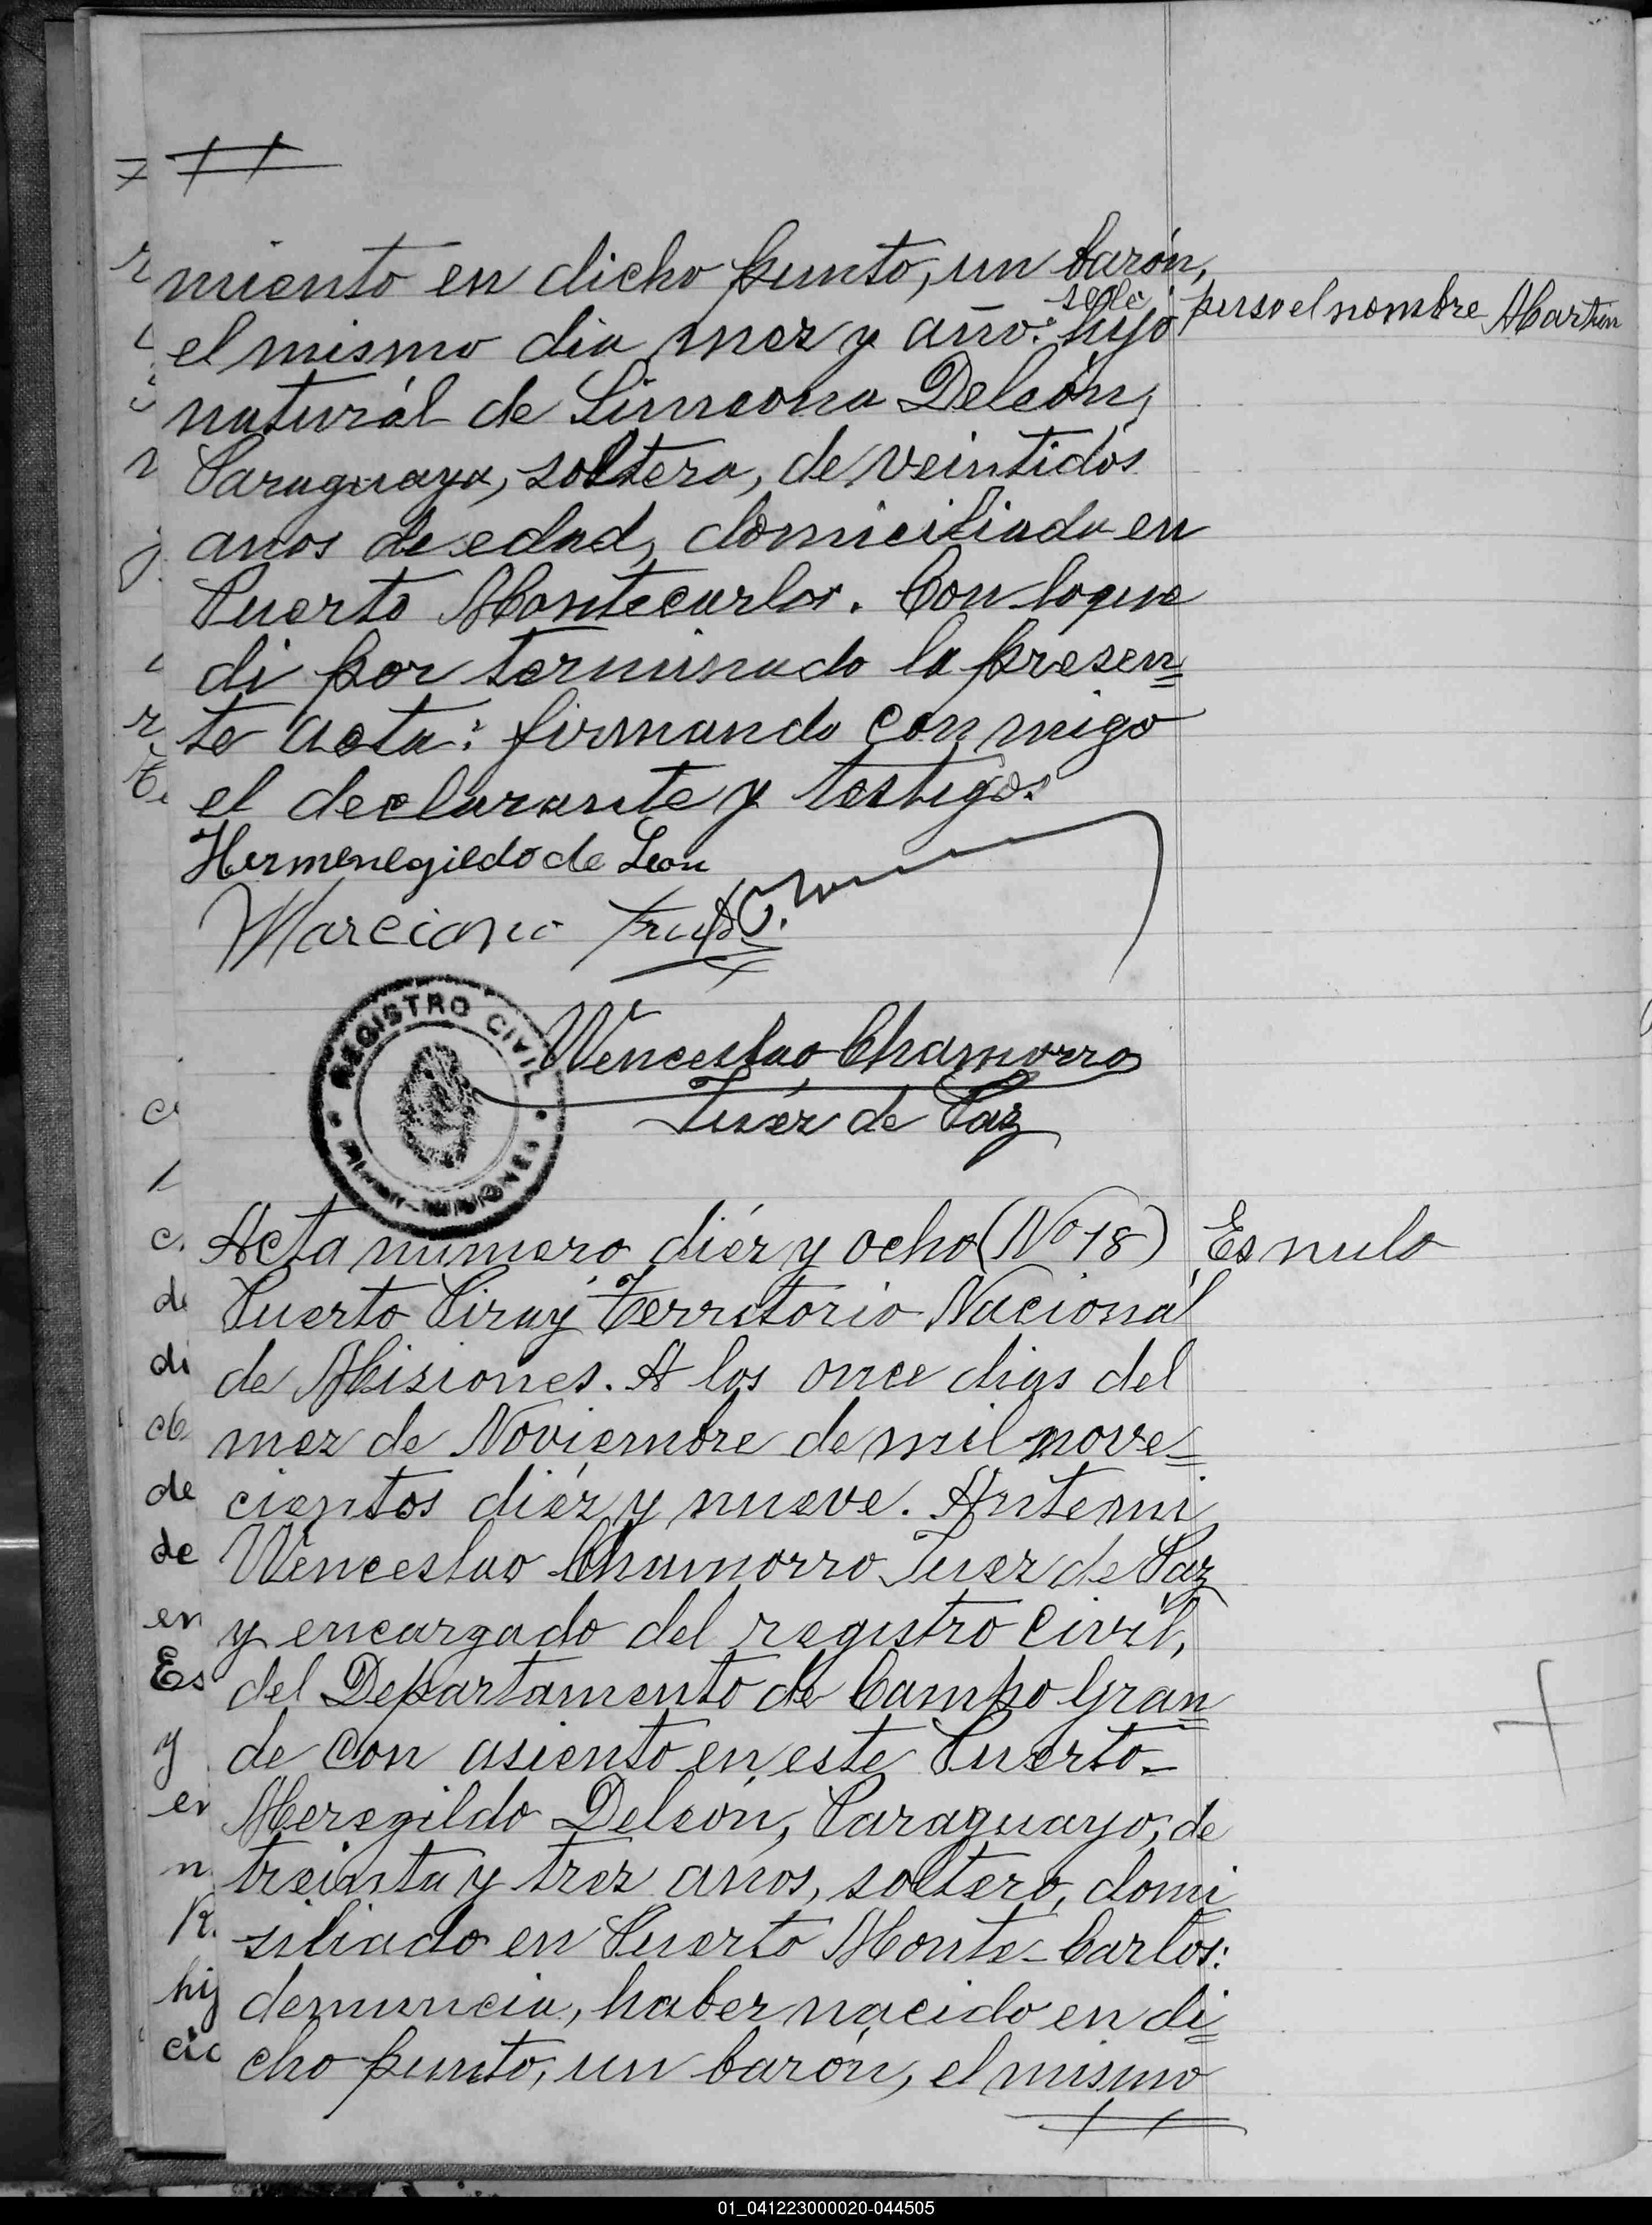 miento en dicho punto, un barón,
se le puso el nombre Martin
el mismo dia mez y año: hijo
naturál de Simeona Deleón,
Paraguaya, soltera, de veintidós
anos de edad, domiciliada en
Puerto Montecarlos. Con loque
di por terminado la presen=
te acta: firmando con migo
el declarante y testigo:
Hermenegildo de Leon
Marciano
REGISTRO CIVIL
Wenceslao Chamorro
Juéz de Paz
Acta número diéz y ocho (No 18) Es nulo
Puerto Piray Territorio Nacional
de Misiones. A los once dias del
mez de Noviembre de mil nove=
cientos diéz y nueve. Antemi
Wenceslao Chamorro Juez de Paz
y encargado del registro Civil,
del Departamento de Campo Gran=
de con asiento en este Puerto_
Meregildo Deleón, Paraguayo, de
treinta y trez anos, soltero, domi
siliado en Puerto Monte-Carlos:
denuncia, haber nacido en di=
cho punto, un barón, el mismo
01_041223000020-044505